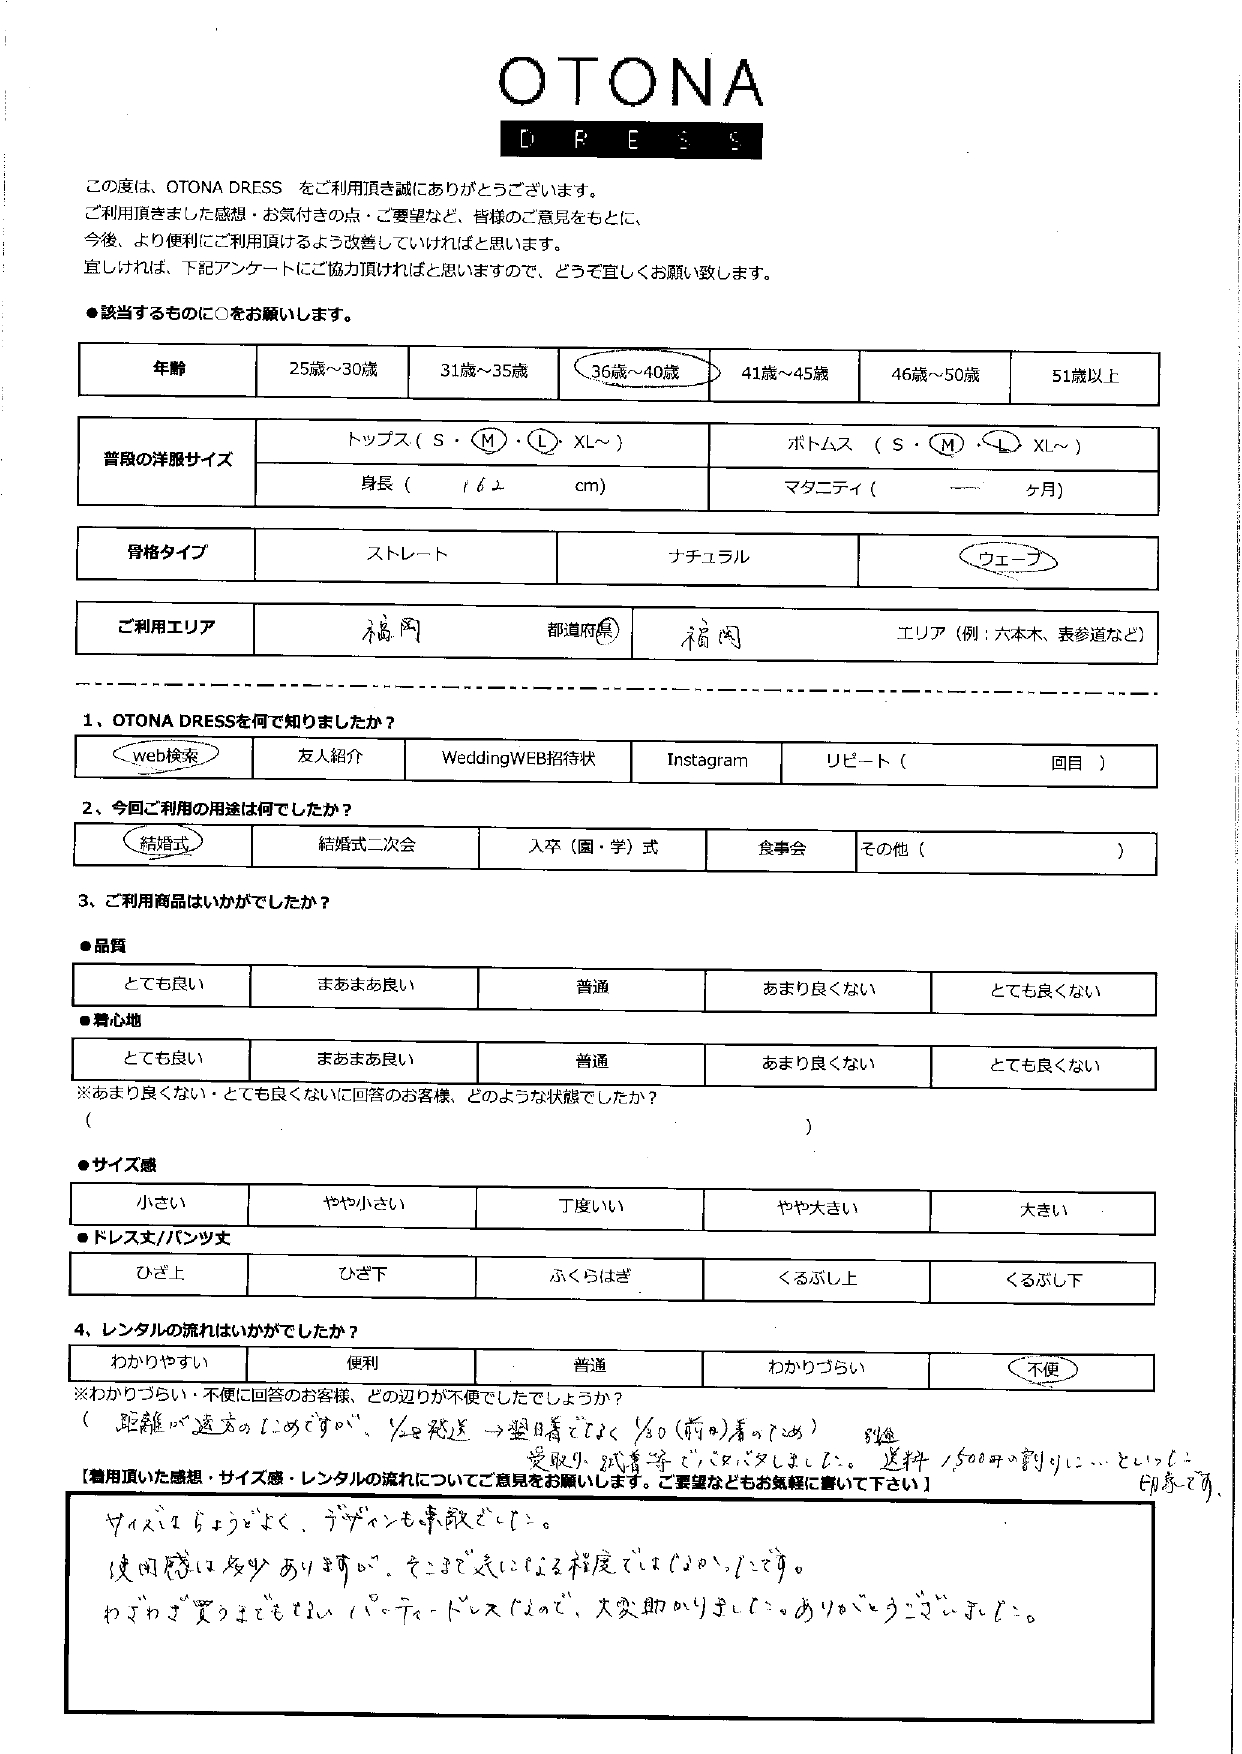 OTONA
DRESS
この度は、OTONA DRESS をご利用頂き誠にありがとうございます。
ご利用頂きました感想・お気付きの点・ご要望など、皆様のご意見をもとに、
今後、より便利にご利用頂けるよう改善していければと思います。
宜しければ、下記アンケートにご協力頂ければと思いますので、どうぞ宜しくお願い致します。
●該当するものに○をお願いします。
年齢 25歳～30歳 31歳～35歳 36歳～40歳 41歳～45歳 46歳～50歳 51歳以上
普段の洋服サイズ トップス ( S ・ M ・ L ・ XL～ ) ボトムス ( S ・ M ・ L ・ XL～ )
身長 ( 162 cm) マタニティ ( ー ヶ月)
骨格タイプ ストレート ナチュラル ウェーブ
ご利用エリア 福岡 都道府県 福岡 エリア（例：六本木、表参道など）
1、OTONA DRESSを何で知りましたか？
web検索 友人紹介 WeddingWEB招待状 Instagram リピート ( 回目 )
2、今回ご利用の用途は何でしたか？
結婚式 結婚式二次会 入卒（園・学）式 食事会 その他 ( )
3、ご利用商品はいかがでしたか？
●品質
とても良い まあまあ良い 普通 あまり良くない とても良くない
●着心地
とても良い まあまあ良い 普通 あまり良くない とても良くない
※あまり良くない・とても良くないに回答のお客様、どのような状態でしたか？
( )
●サイズ感
小さい やや小さい 丁度いい やや大きい 大きい
●ドレス丈/パンツ丈
ひざ上 ひざ下 ふくらはぎ くるぶし上 くるぶし下
4、レンタルの流れはいかがでしたか？
わかりやすい 便利 普通 わかりづらい 不便
※わかりづらい・不便に回答のお客様、どの辺りが不便でしたでしょうか？
( 距離が遠方のためですが、1/28発送 →翌日着でなく 1/30 (前日)着のため )
受取り、試着等でバタバタしました。 別途 送料 1,500円の割りに…といった
印象です。
【着用頂いた感想・サイズ感・レンタルの流れについてご意見をお願いします。ご要望などもお気軽に書いて下さい】
サイズはちょうどよく、デザインも素敵でした。
使用感は多少ありますが、そこまで気になる程度ではなかったです。
わざわざ買うまでもないパーティードレスなので、大変助かりました。ありがとうございました。